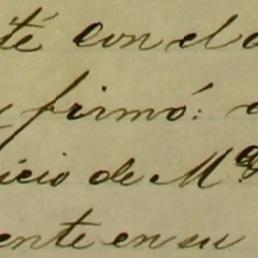 té con el
firmó:
icio de M.ª
ente en su